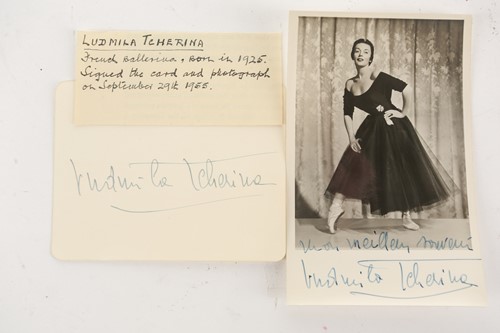 LUDMILA TCHERINA
French ballerina. Born in 1925.
Signed the card and photograph
on September 29th 1955.
Ludmila Tcherina
mon meilleur souvenir
Ludmila Tcherina